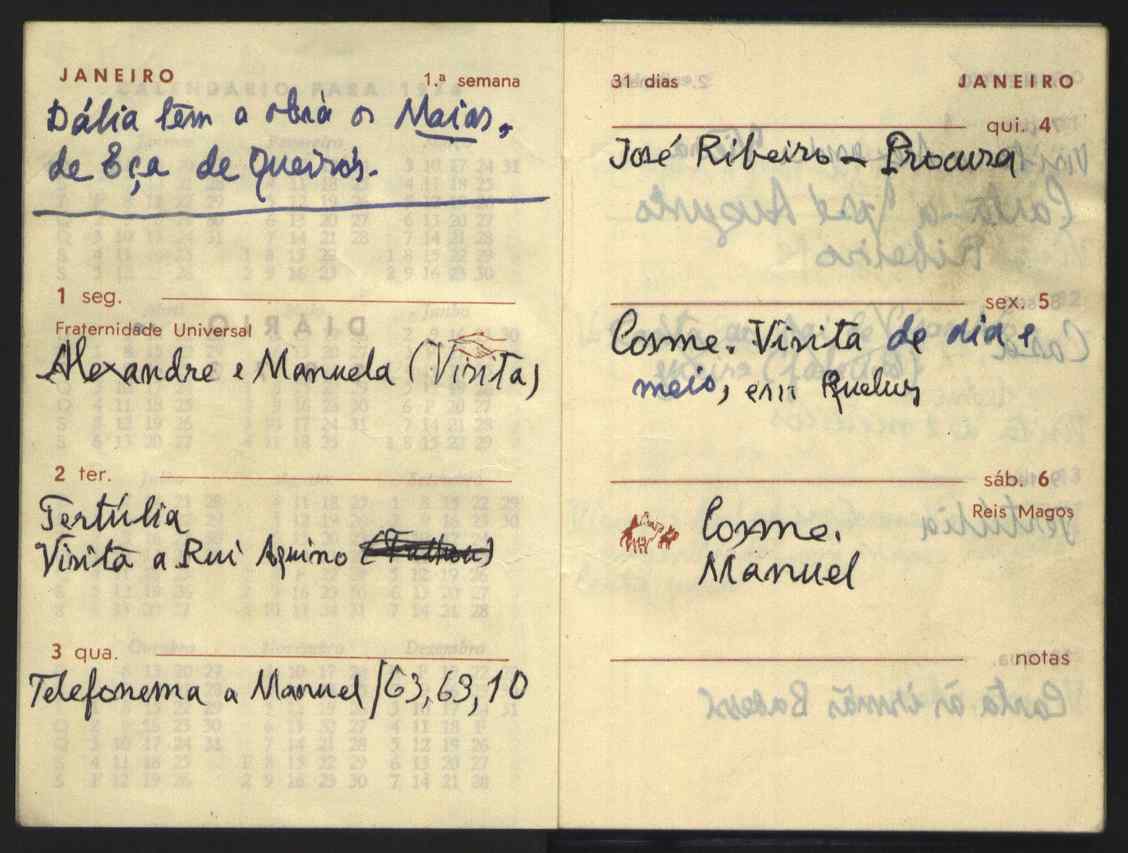 JANEIRO 1.ª semana
Dália tem a obra os Maias,
de Eça de Queirós.
1 seg.
Fraternidade Universal
Alexandre e Manuela (Visita)
2 ter.
Tertúlia
Visita a Rui Aquino
3 qua.
Telefonema a Manuel / 63,63,10
31 dias JANEIRO
qui. 4
José Ribeiro - Procura
sex. 5
Cosme. Visita de dia e
meio, em Queluz
sáb. 6
Reis Magos
Cosme.
Manuel
notas